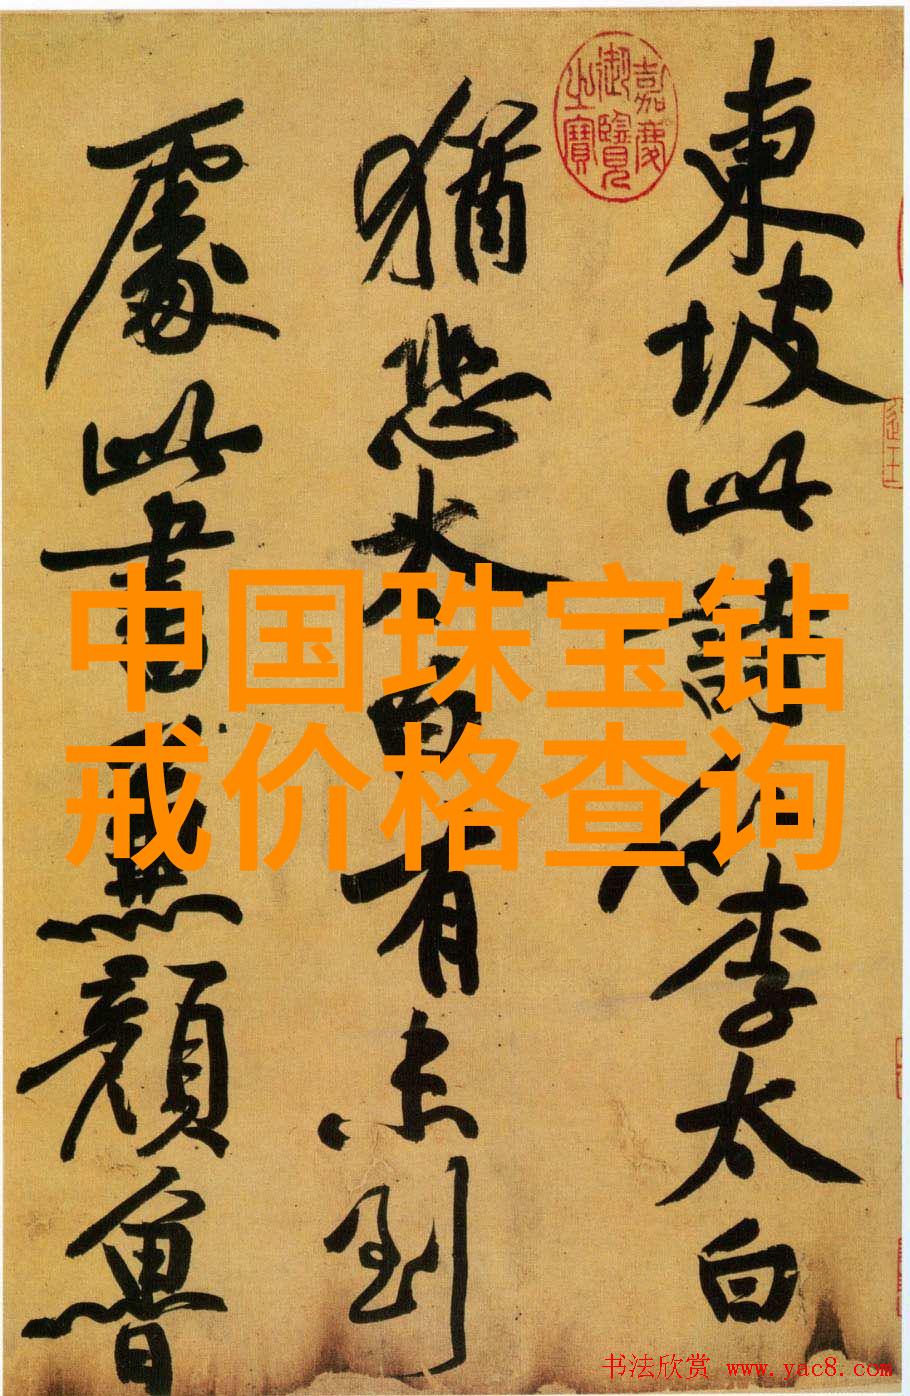 東坡此詩似李太白
猶恐太白有未到
處此書兼顏魯
嘉慶
御覽
之寶
中国珠宝钻
戒价格查询
书法欣赏 www.yac8.com